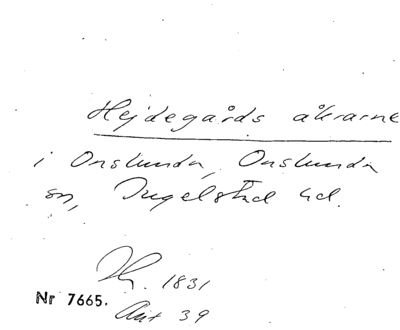 Hejdegårds åkrarne
i Onslunda, Onslunda
sn, Ingelstad hd.
1831
Nr 7665.
Akt 39